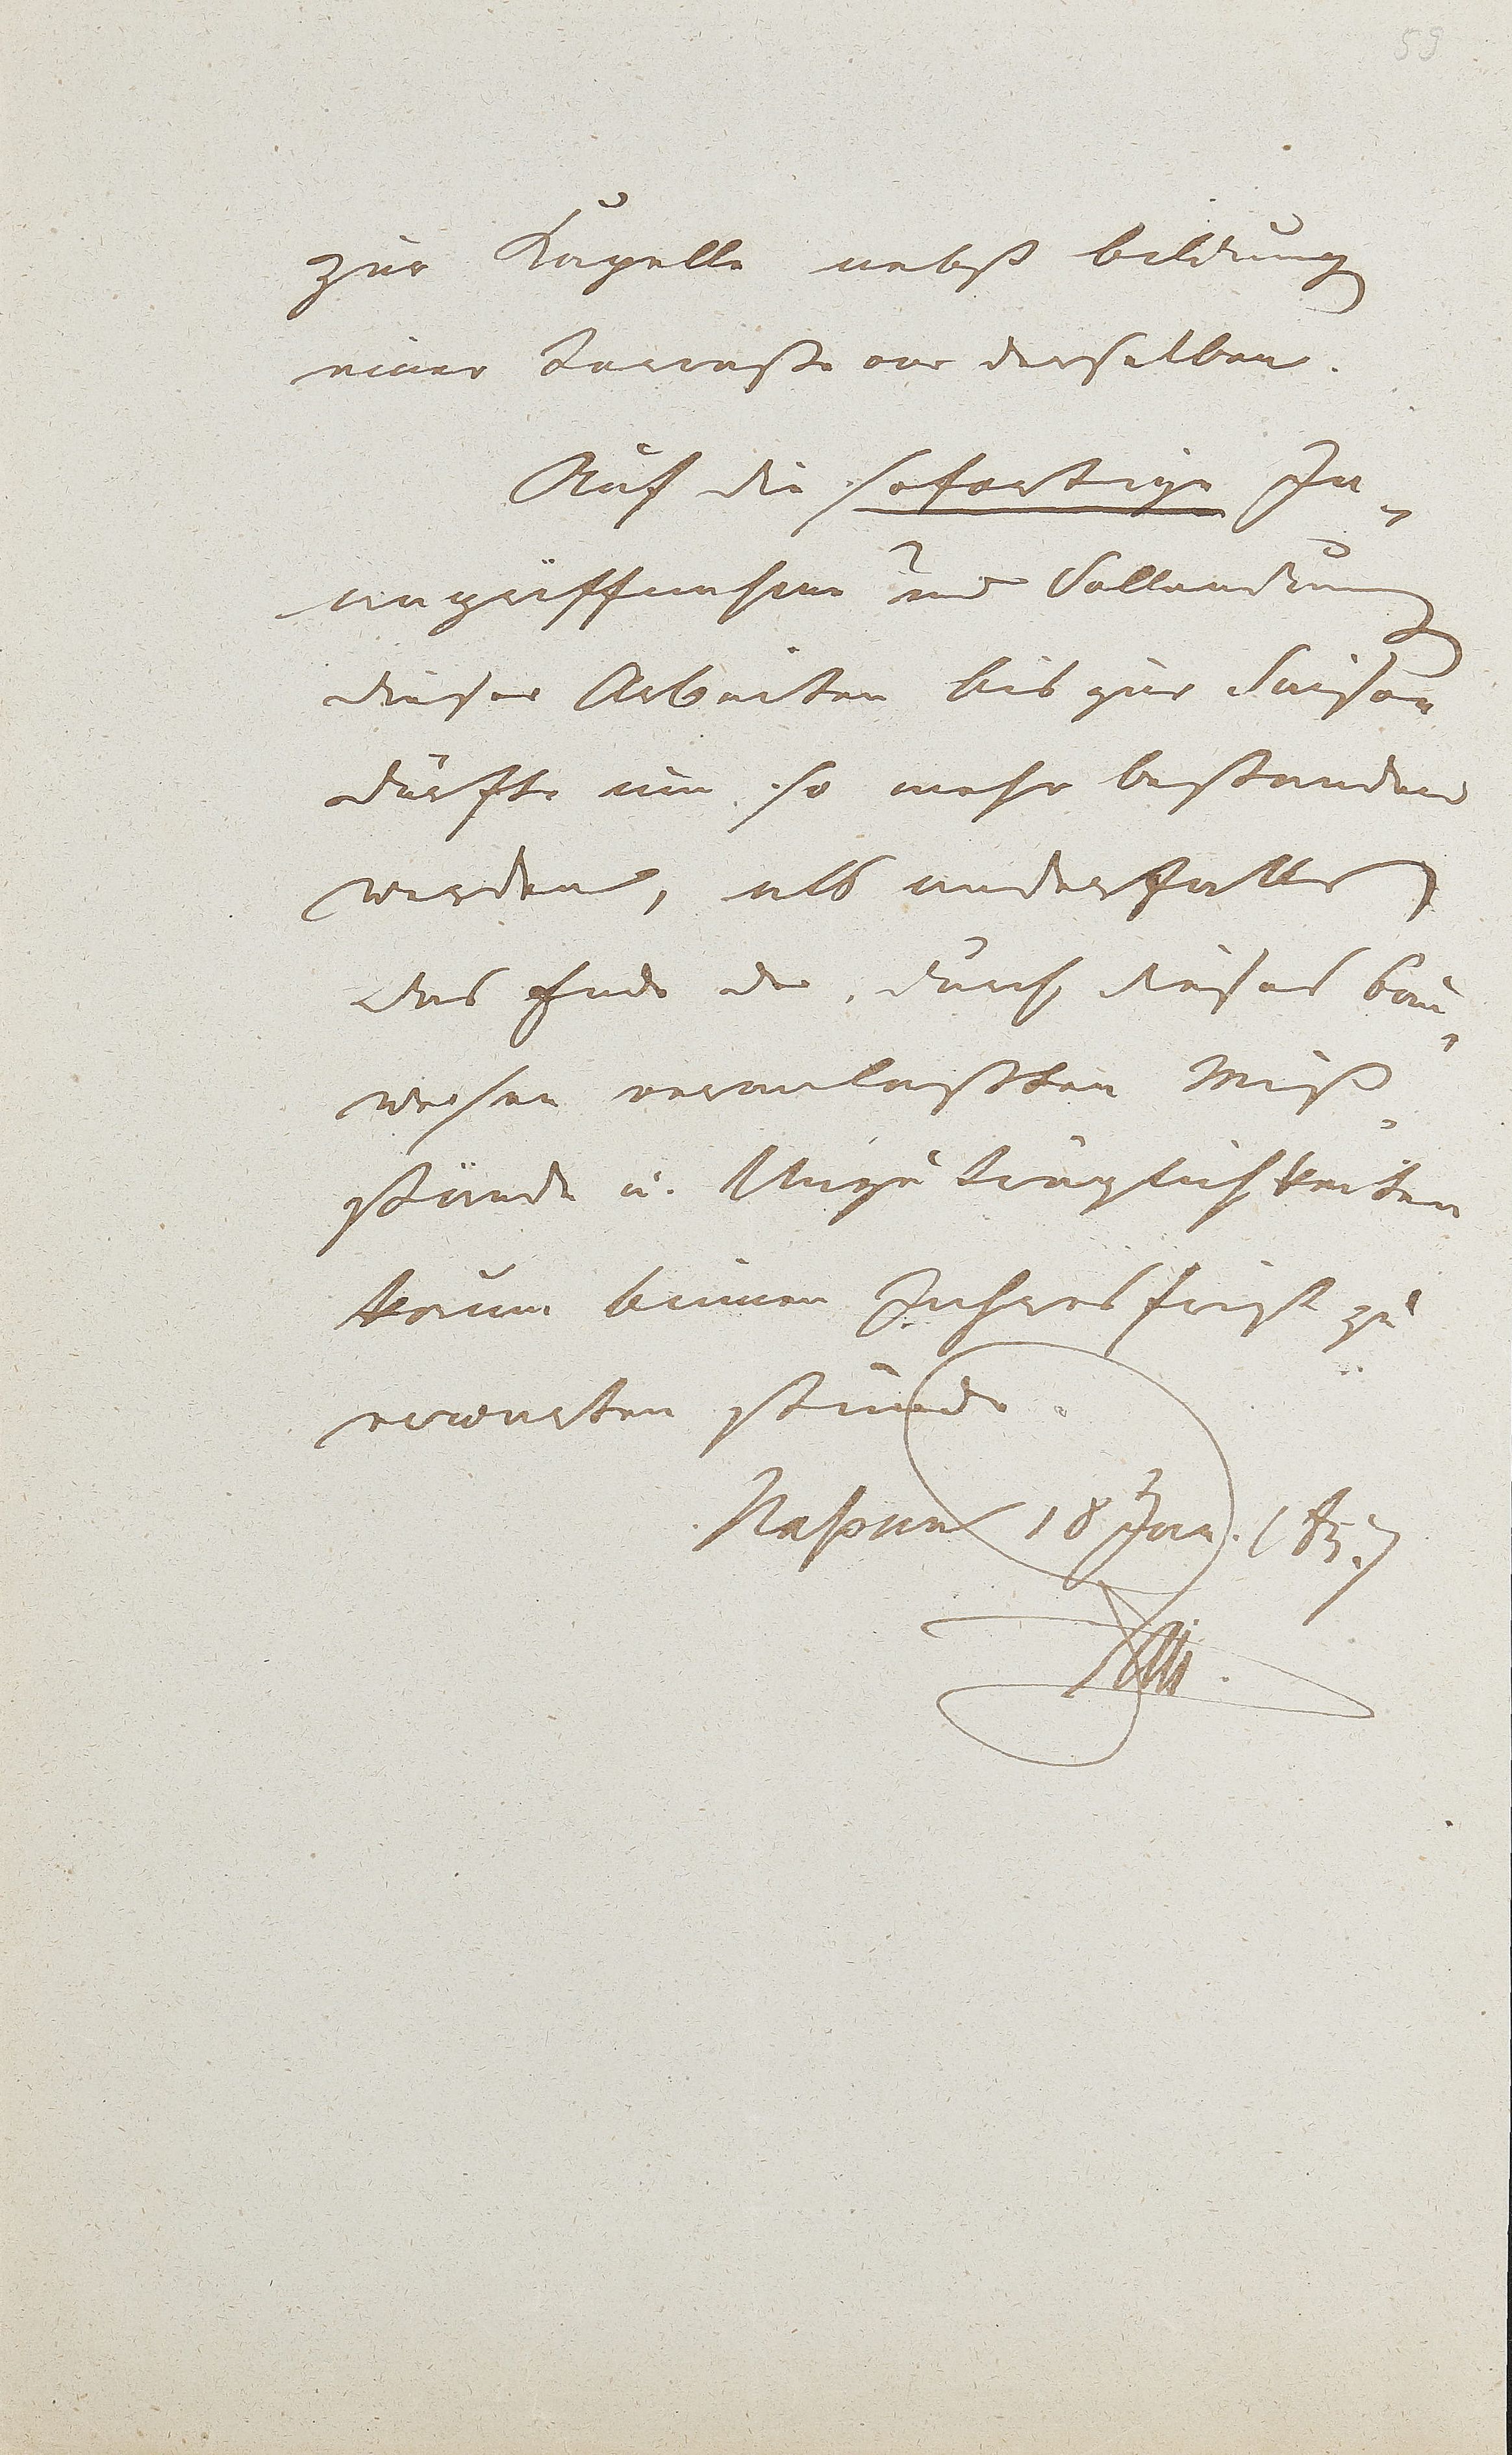 59
zur Kapelle nebst bildung
einer Terrasse vor derselben.
Auf die sofortige In„
angriffnahme und Vollendung
dieser Arbeiten bis zur Saison
dürfte um so mehr bestanden
werden, als anderfalls
das Ende der, durch dieses Bau„
wesen veranlaßten Miß„
stände u. Unzuträglichkeiten
kaum binnen Jahresfrist zu
erwarten stünde.
18 Jan. 1857